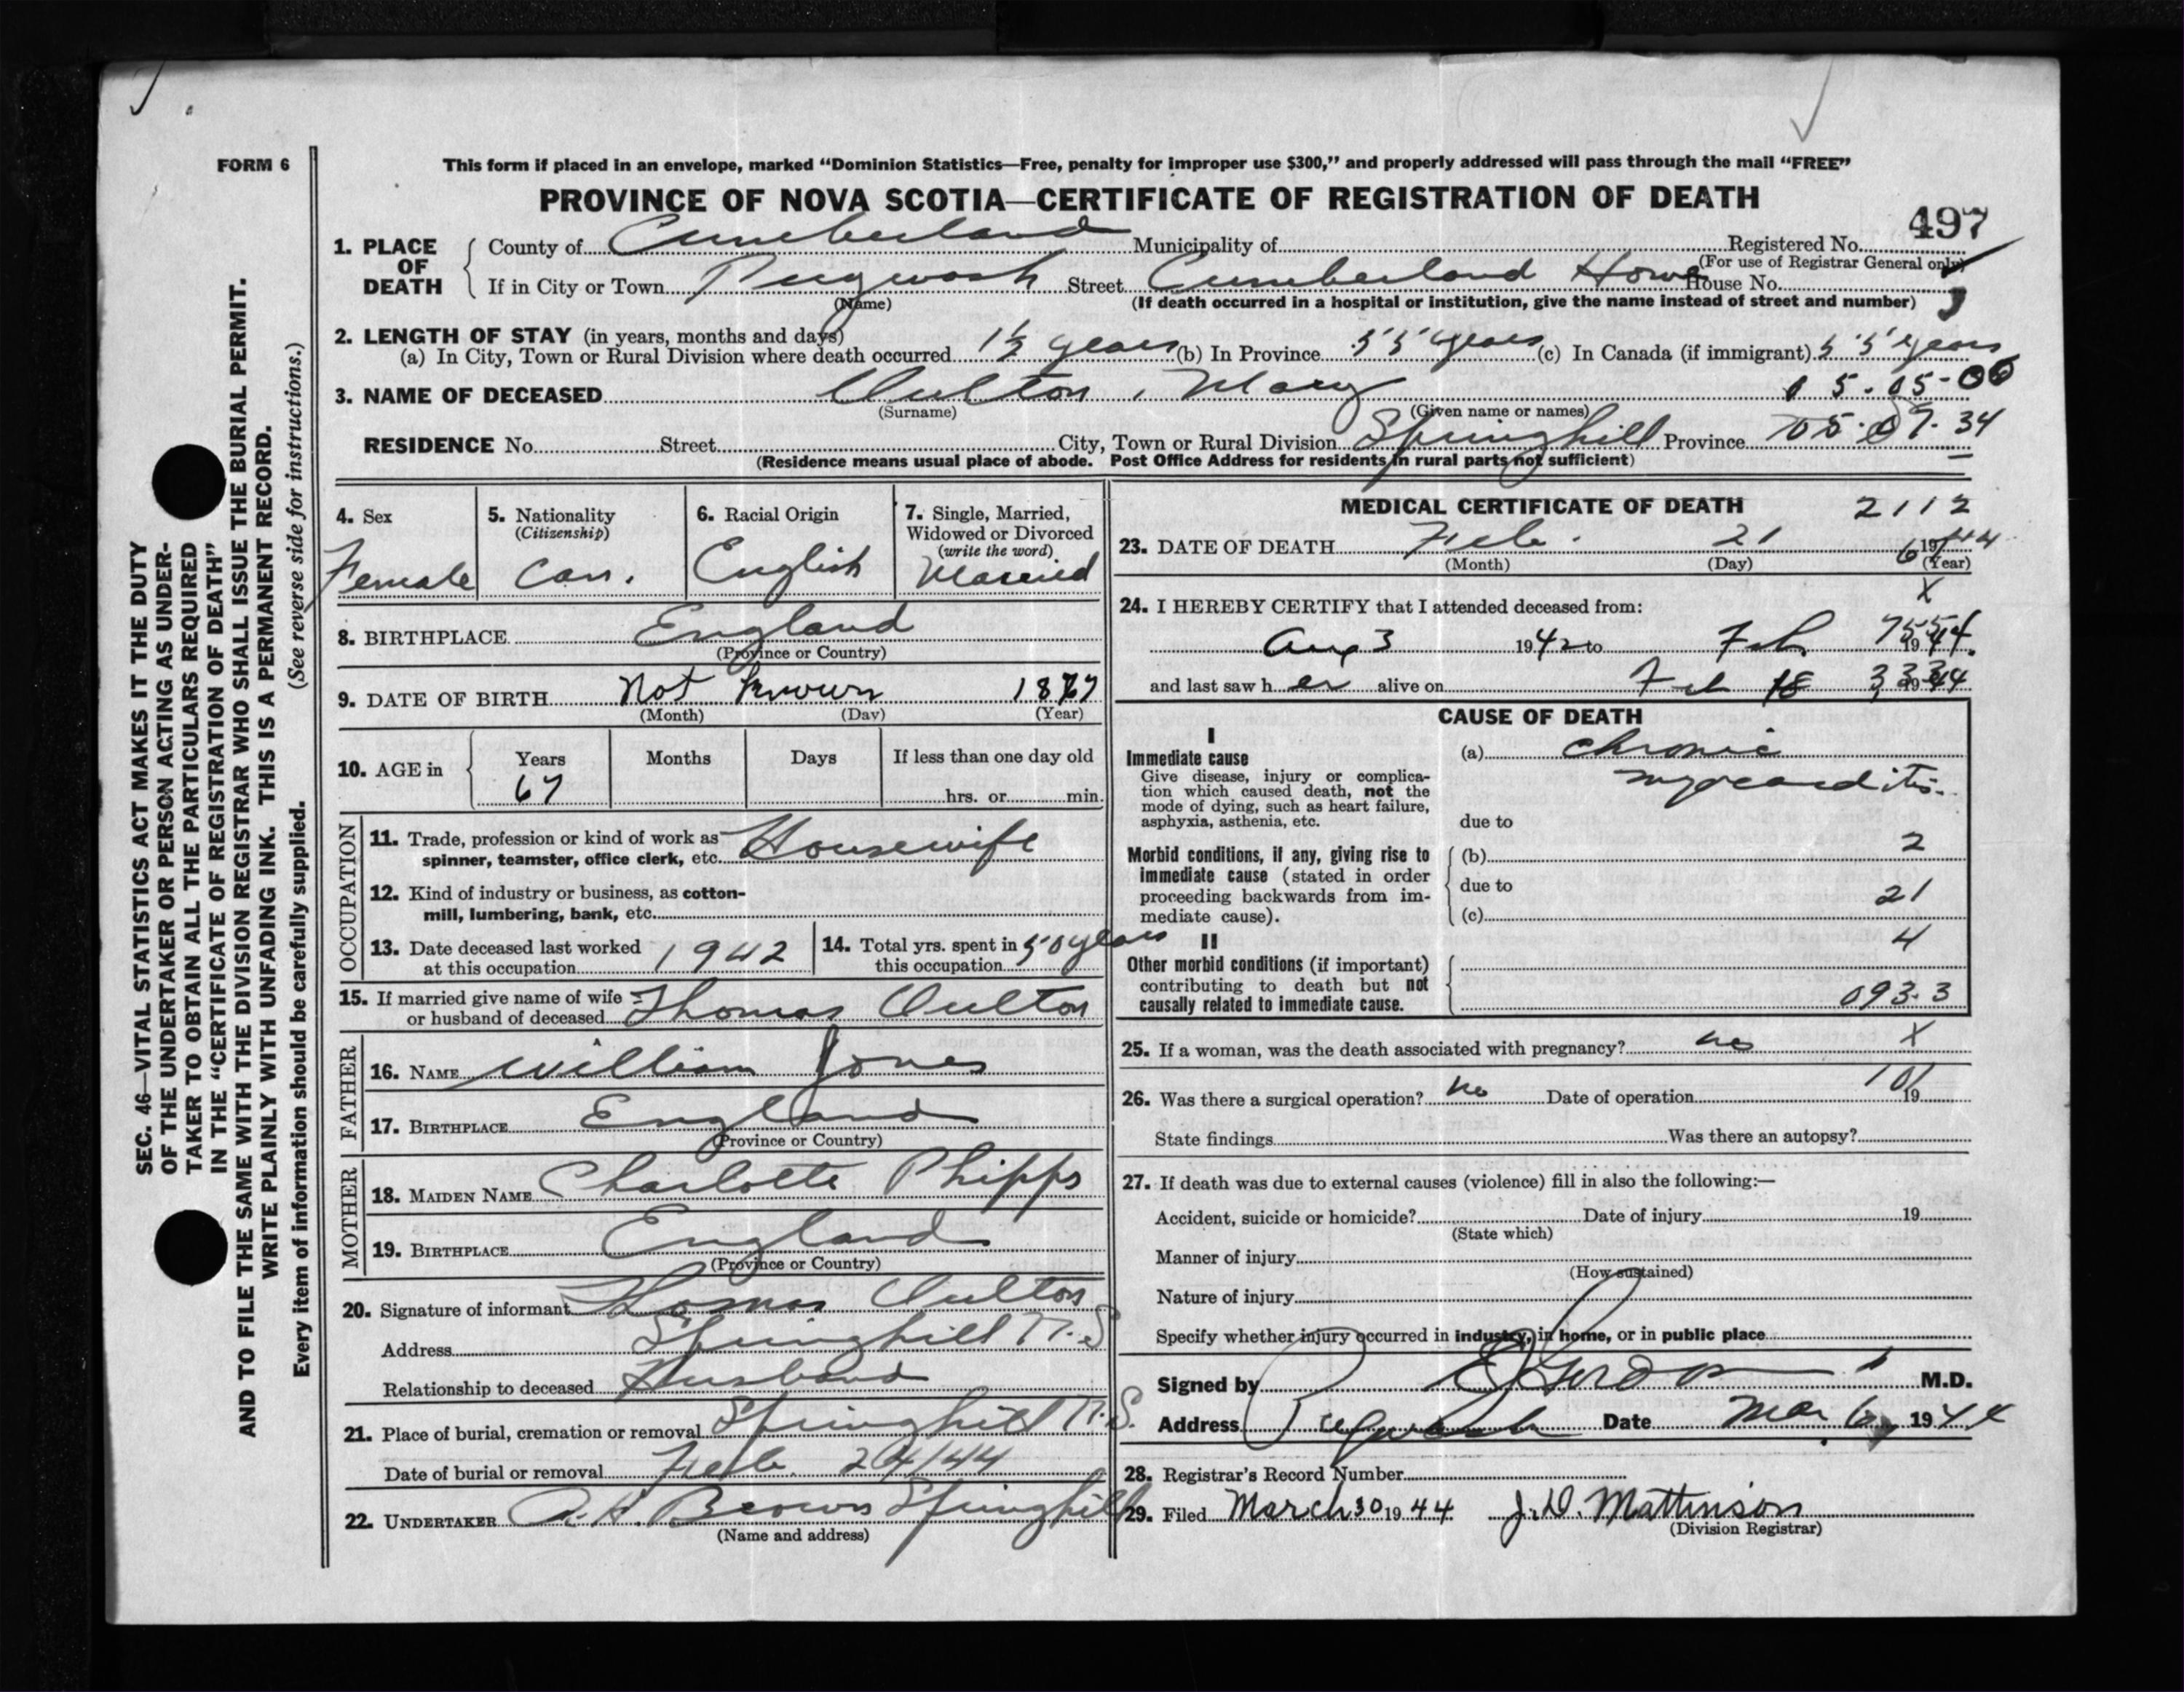 FORM 6
This form if placed in an envelope, marked “Dominion Statistics—Free, penalty for improper use $300,” and properly addressed will pass through the mail “FREE”
PROVINCE OF NOVA SCOTIA—CERTIFICATE OF REGISTRATION OF DEATH
497
1. PLACE OF DEATH County of Cumberland Municipality of Registered No.
(For use of Registrar General only)
If in City or Town Pugwash Street Cumberland Home House No.
(Name) (If death occurred in a hospital or institution, give the name instead of street and number)
2. LENGTH OF STAY (in years, months and days)
(a) In City, Town or Rural Division where death occurred 1½ years (b) In Province 55 years (c) In Canada (if immigrant) 55 years
3. NAME OF DECEASED Oulton, Mary 05-05-00
(Surname) (Given name or names)
RESIDENCE No. Street City, Town or Rural Division Springhill Province 05-09-34
(Residence means usual place of abode. Post Office Address for residents in rural parts not sufficient)
4. Sex Female
5. Nationality (Citizenship) Can.
6. Racial Origin English
7. Single, Married, Widowed or Divorced (write the word) Married
8. BIRTHPLACE England
(Province or Country)
9. DATE OF BIRTH Not Known 1877
(Month) (Day) (Year)
10. AGE in Years Months Days If less than one day old
67 hrs. or min.
OCCUPATION
11. Trade, profession or kind of work as spinner, teamster, office clerk, etc. Housewife
12. Kind of industry or business, as cotton-mill, lumbering, bank, etc.
13. Date deceased last worked at this occupation 1942
14. Total yrs. spent in this occupation 50 years
15. If married give name of wife or husband of deceased Thomas Oulton
FATHER
16. NAME William Jones
17. BIRTHPLACE England
(Province or Country)
MOTHER
18. MAIDEN NAME Charlotte Phipps
19. BIRTHPLACE England
(Province or Country)
20. Signature of informant Thomas Oulton
Address Springhill N.S
Relationship to deceased Husband
21. Place of burial, cremation or removal Springhill N.S.
Date of burial or removal Feb. 24/44
22. UNDERTAKER A.H. Brown Springhill
(Name and address)
MEDICAL CERTIFICATE OF DEATH 2112
23. DATE OF DEATH Feb. 21 6 1944
(Month) (Day) (Year)
X
24. I HEREBY CERTIFY that I attended deceased from:
Aug 3 1942 to Feb 1944.
and last saw her alive on Feb 18 1944
CAUSE OF DEATH
I
Immediate cause (a) Chronic
Give disease, injury or complication which caused death, not the mode of dying, such as heart failure, asphyxia, asthenia, etc. myocarditis.
due to
Morbid conditions, if any, giving rise to immediate cause (stated in order proceeding backwards from immediate cause).
(b) 2
due to
21
(c)
II 4
Other morbid conditions (if important) contributing to death but not causally related to immediate cause.
093.3
25. If a woman, was the death associated with pregnancy? no X
26. Was there a surgical operation? no Date of operation 19
101
State findings Was there an autopsy?
27. If death was due to external causes (violence) fill in also the following:—
Accident, suicide or homicide? Date of injury 19
(State which)
Manner of injury
(How sustained)
Nature of injury
Specify whether injury occurred in industry, in home, or in public place
Signed by M.D.
Address Pugwash Date Mar 6 1944
28. Registrar's Record Number
29. Filed March 30 1944 J.D. Mattinson
(Division Registrar)
SEC. 46—VITAL STATISTICS ACT MAKES IT THE DUTY
OF THE UNDERTAKER OR PERSON ACTING AS UNDER-
TAKER TO OBTAIN ALL THE PARTICULARS REQUIRED
IN THE “CERTIFICATE OF REGISTRATION OF DEATH”
AND TO FILE THE SAME WITH THE DIVISION REGISTRAR WHO SHALL ISSUE THE BURIAL PERMIT.
WRITE PLAINLY WITH UNFADING INK. THIS IS A PERMANENT RECORD.
Every item of information should be carefully supplied. (See reverse side for instructions.)